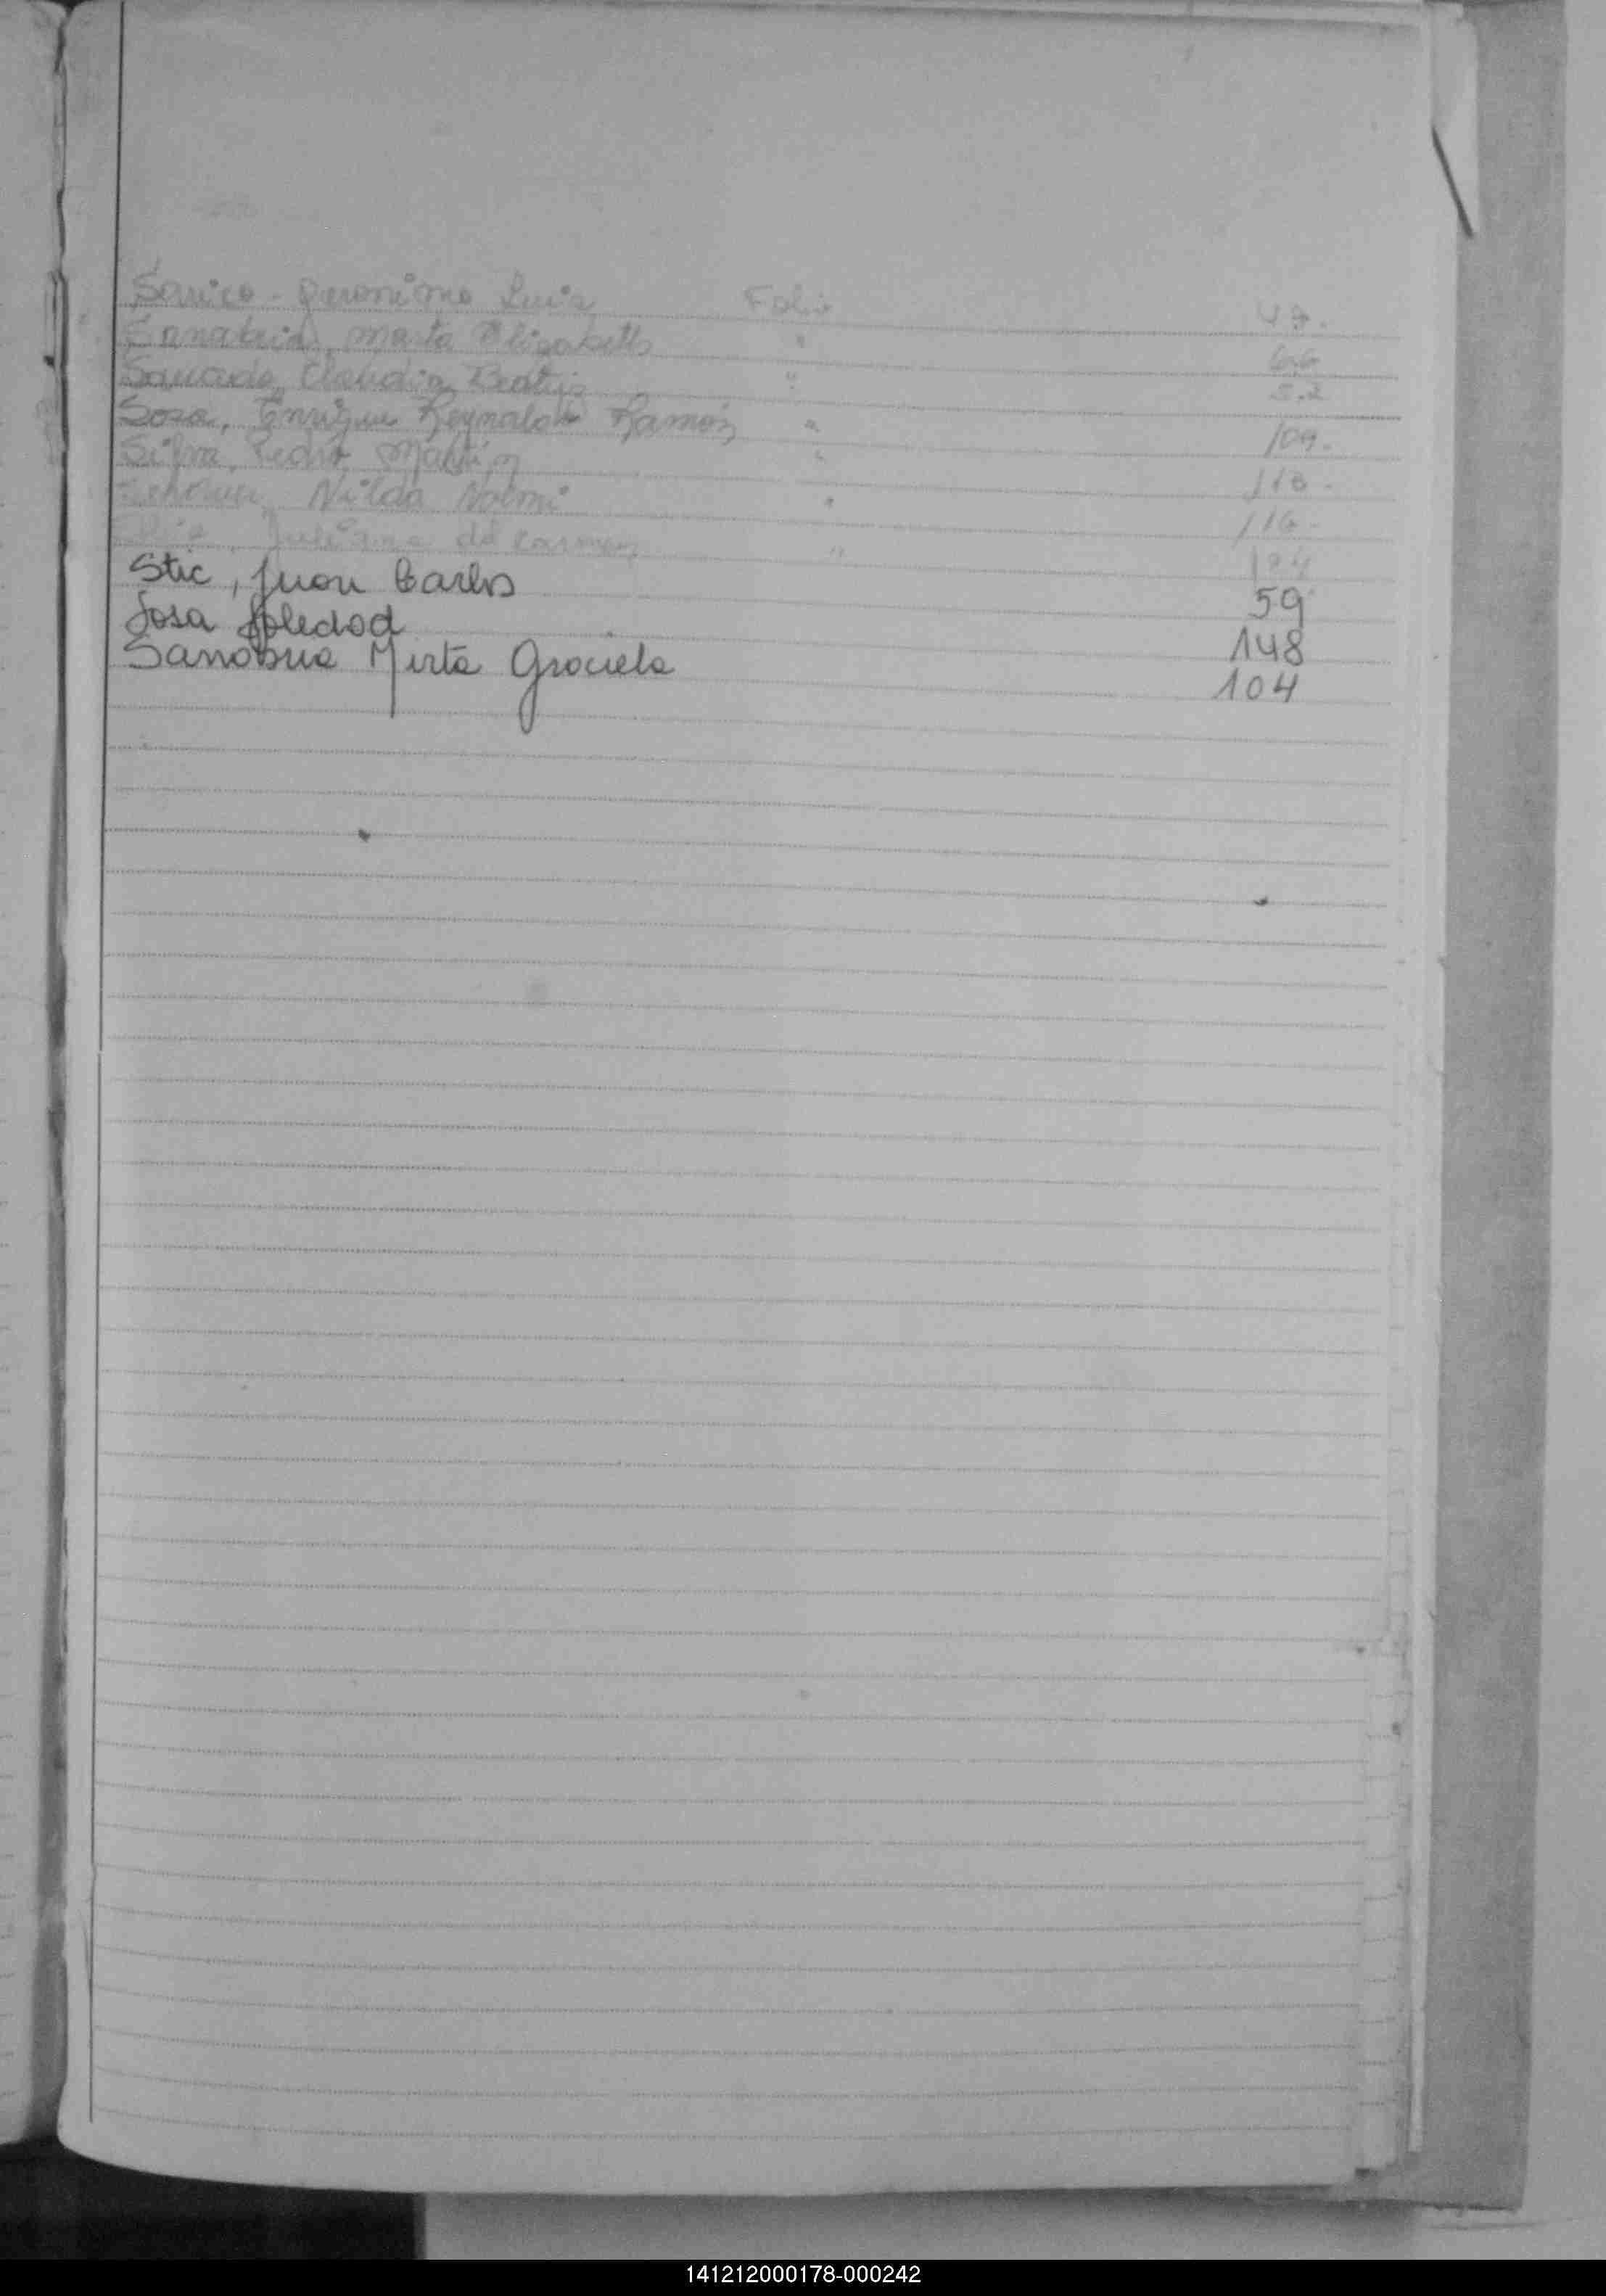 Geronimo Luis Folio 47.
Sanabria, Marta Elizabeth " 66
Claudia Beatriz " 52
Sosa, Enrique Reynaldo Ramón " 109.
Silva, Pedro Martin "
Nilda Noemi " 116.
Juliana del Carmen " 124
Stic, Juan Carlos 59
Sosa Soledad 148
Sanabria Mirta Graciela 104
141212000178-000242